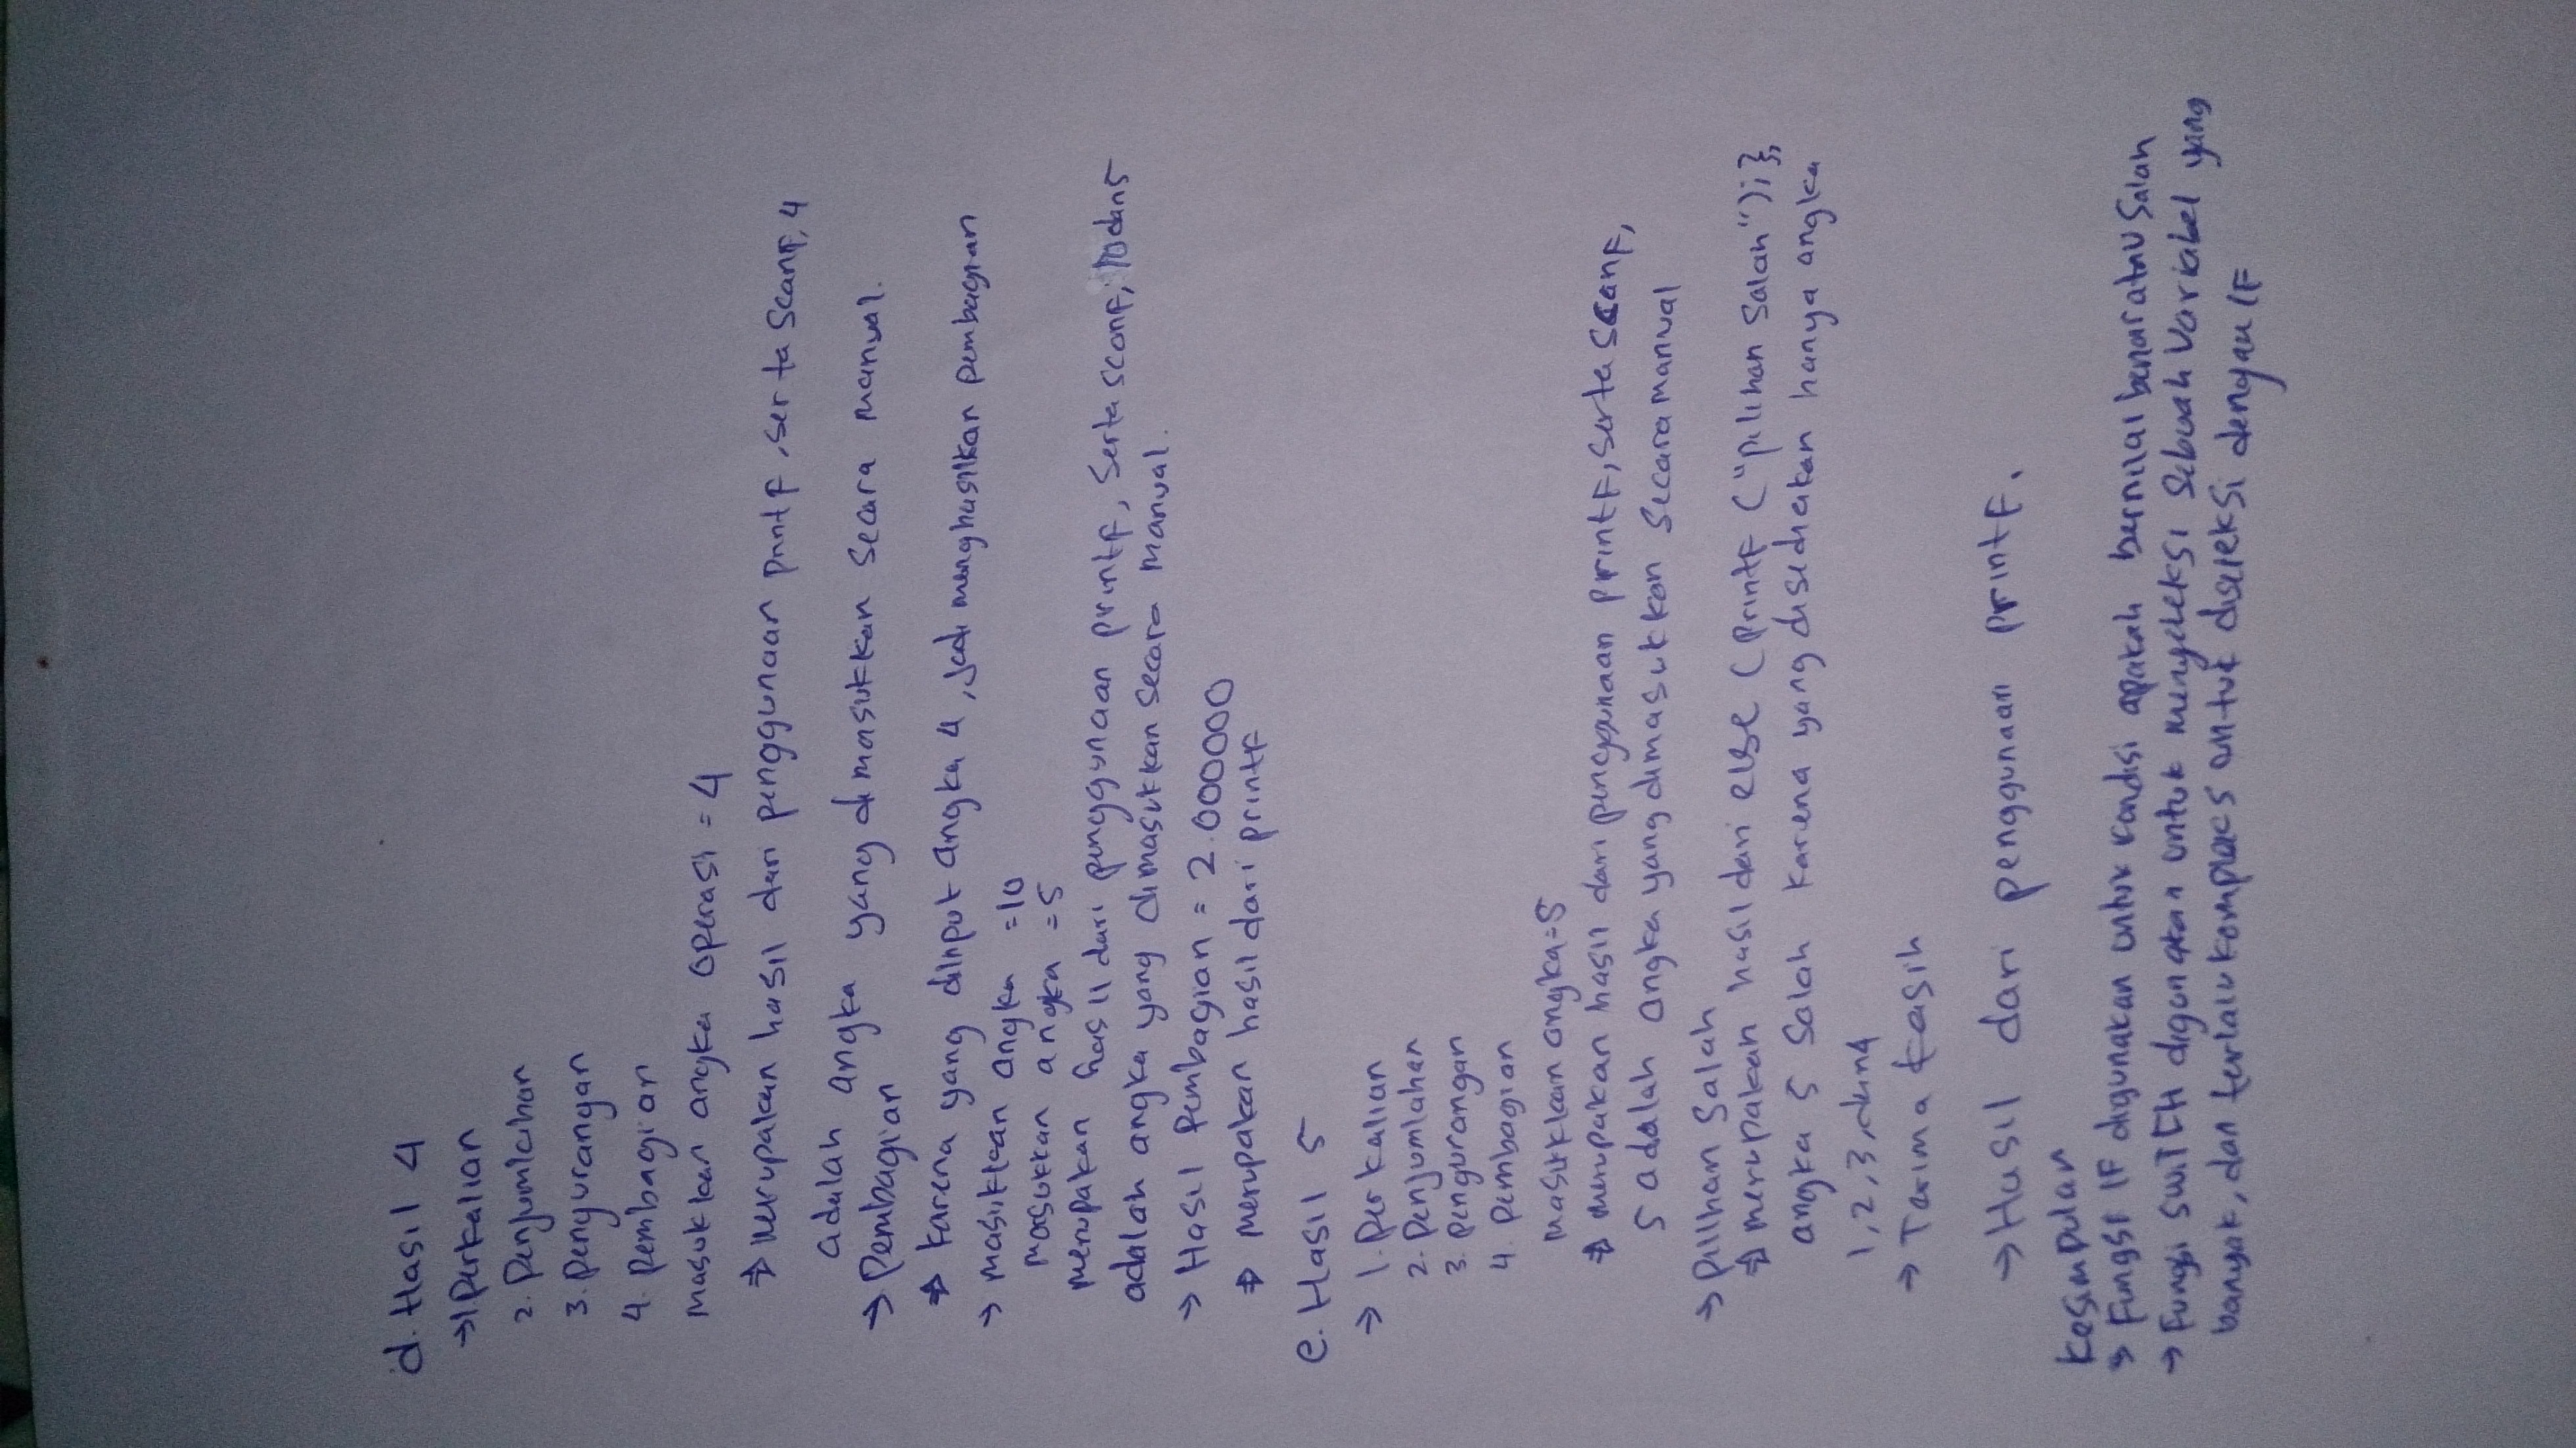 d. Hasil 4
→ 1. Perkalian
2. Penjumlahan
3. Pengurangan
4. Pembagian
Masukkan angka operasi = 4
⇒ Merupakan hasil dari penggunaan printf, serta Scanf, 4
adalah angka yang dimasukkan secara manual.
→ Pembagian
⇒ Karena yang diinput angka 4, jadi menghasilkan pembagian
→ Masukkan angka = 10
Masukkan angka = 5
Merupakan hasil dari penggunaan printf, serta scanf, 10 dan 5
adalah angka yang dimasukkan secara manual.
→ Hasil Pembagian = 2.000000
⇒ Merupakan hasil dari printf
e. Hasil 5
→ 1. Perkalian
2. Penjumlahan
3. Pengurangan
4. Pembagian
Masukkan angka = 5
⇒ Merupakan hasil dari penggunaan printf, serta Scanf,
5 adalah angka yang dimasukkan secara manual
→ Pilihan Salah
⇒ Merupakan hasil dari else ( printf ("pilihan Salah"); },
angka 5 Salah Karena yang disediakan hanya angka
1, 2, 3, dan 4
→ Terima Kasih
→ Hasil dari penggunaan printf.
Kesimpulan
→ Fungsi IF digunakan untuk kondisi apakah bernilai benar atau Salah
→ Fungsi SWITCH digunakan untuk menyeleksi Sebuah Variabel yang
banyak, dan terlalu kompleks untuk diseleksi dengan IF